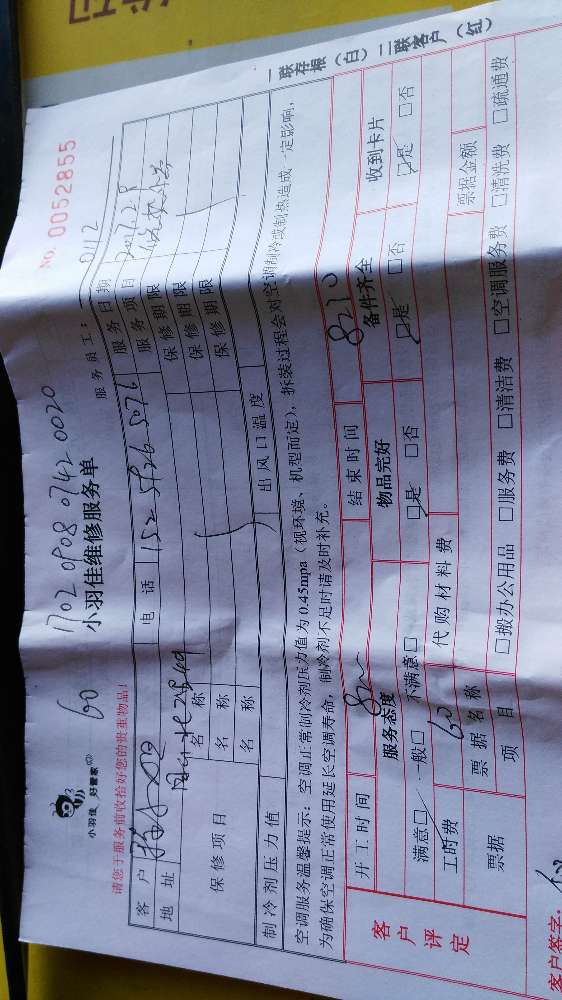 一联存根（白）二联客户（红）
NO. 0052855
1702 0908 0742 0020
小羽佳维修服务单
60
小羽佳 好管家
请您于服务前收拾好您的贵重物品！
服务员工：0112
客户 电话 152 5926 5076 服务日期 2017.2.8
地址 服务项目
保修项目 名称 保修期限
名称 保修期限
名称 保修期限
制冷剂压力值 出风口温度
空调服务温馨提示：空调正常制冷剂压力值为0.45mpa（视环境、机型而定），拆装过程会对空调制冷或制热造成一定影响，
为确保空调正常使用延长空调寿命，制冷剂不足时请及时补充。
客户评定
开工时间 结束时间
服务态度 物品完好 备件齐全 收到卡片
满意□ 一般□ 不满意□ □是 □否 □是 □否 □是 □否
工时费 60 代购材料费
票据 票据名称 票据金额
项目 □搬办公用品 □服务费 □清洁费 □空调服务费 □清洗费 □疏通费
客户签字：